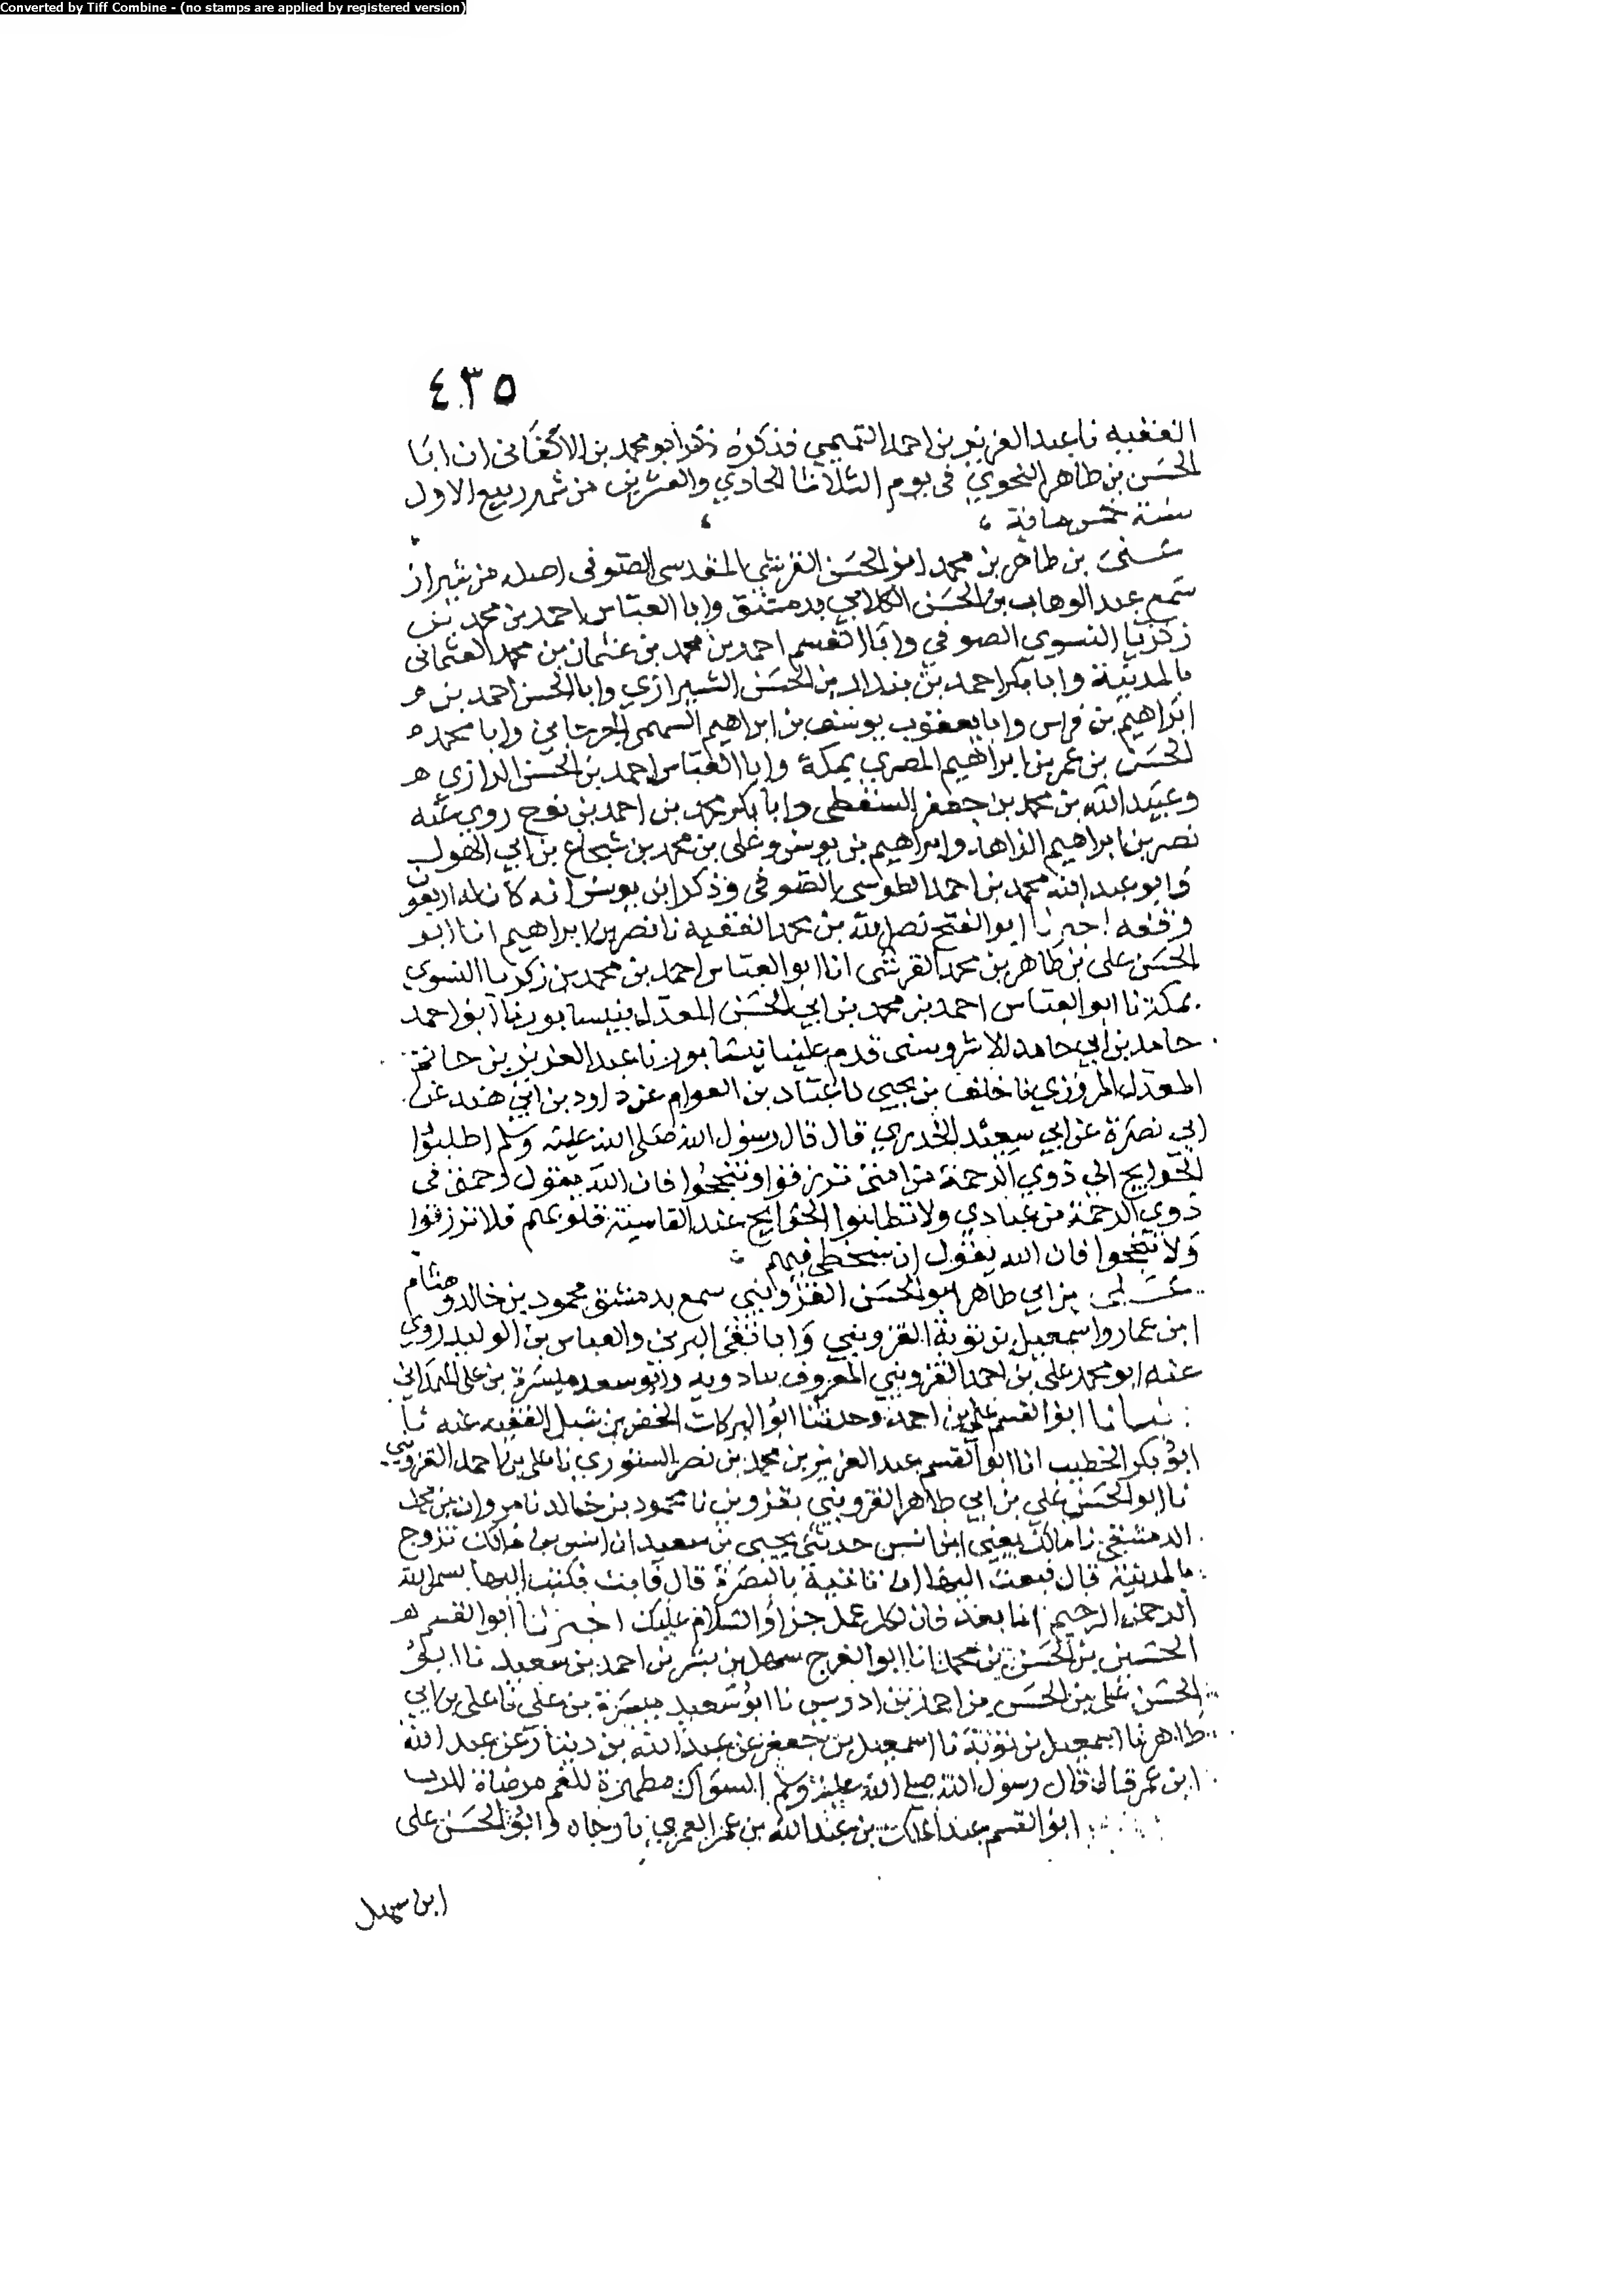 Converted by Tiff Combine - (no stamps are applied by registered version)
٤٣٥
الفقيه نا عبد العزيز بن احمد التميمي فذكره ذكر ابو محمد بن الاكفاني ان ابا
الحسن بن طاهر النحوي في يوم الثلاثا الحادي والعشرين من شهر ربيع الاول
سنة خمس مائة
علي بن طاهر بن محمد ابو الحسن القرشي المقدسي الصوفي اصله من شيراز
سمع عبد الوهاب بن الحسن الكلابي بدمشق وابا العباس احمد بن محمد بن
زكريا النسوي الصوفي وابا القسم احمد بن محمد بن عثمان بن محمد العثماني
بالمدينة وابا بكر احمد بن بندار بن الحسن الشيرازي وابا الحسن احمد بن
ابراهيم بن فراس وابا يعقوب يوسف بن ابراهيم السهمي الجرجاني وابا محمد
الحسن بن عمر بن ابراهيم المصري بمكة وابا العباس احمد بن الحسن الرازي
وعبيد الله بن محمد بن جعفر السقطي وابا بكر محمد بن احمد بن نوح روى عنه
نصر بن ابراهيم الزاهد وابراهيم بن يونس وعلى بن محمد بن شجاع بن ابي الهول
وابو عبد الله محمد بن احمد الطوسي الصوفي وذكر ابن يونس انه كان له اربعون
وقفه اخبرنا ابو الفتح نصر الله بن محمد الفقيه نا نصر بن ابراهيم انا ابو
الحسن على بن طاهر بن محمد القرشي انا ابو العباس احمد بن محمد بن زكريا النسوي
بمكة نا ابو العباس احمد بن محمد بن ابي الحسن المعدل بنيسابور نا ابو احمد
حامد بن ابي حامد الاشروسني قدم علينا نيشابور نا عبد العزيز بن حاتم
المعدل المروزي نا خلف بن يحيى نا عباد بن العوام عن داود بن ابي هند عن
ابي نصرة عن ابي سعيد الخدري قال قال رسول الله صلى الله عليه وسلم اطلبوا
الحوايج الي ذوي الرحمة من امتي ترزقوا وتنجحوا فان الله يقول رحمتي في
ذوي الرحمة من عبادي ولا تطلبوا الحوايج عند القاسية قلوبهم فلا ترزقوا
ولا تنجحوا فان الله يقول ان سخطي فيهم
علي بن ابي طاهر ابو الحسن القزويني سمع بدمشق محمود بن خالد وهشام
ابن عمار واسمعيل بن توبة القزويني وابا تقي اليزني والعباس بن الوليد روى
عنه ابو محمد على بن احمد القزويني المعروف ببادويه وابو سعد ميسرة بن على الهمداني
انا ابو القسم علي بن احمد وحدثنا ابو البركات الخضر بن شبل الفقيه عنه نا
ابو بكر الخطيب انا ابو القسم عبد العزيز بن محمد بن نصر الستوري نا علي بن احمد القزويني
نا ابو الحسن على بن ابي طاهر القزويني بقزوين نا محمود بن خالد نا مروان بن محمد
الدمشقي نا مالك يعني ابن انس حدثني يحيى بن سعيد ان انس بن مالك تزوج
بالمدينة قال فبعث اليها ان تاتيه بالبصرة قال فابت فكتب اليها بسم الله
الرحمن الرحيم اما بعد فان لكل عمل جزا والسلام عليك اخبرنا ابو القسم
الحسين بن الحسن بن محمد انا ابو الفرج سهل بن بشر بن احمد بن سعيد نا ابو
الحسن على بن الحسن بن احمد بن ادريس نا ابو سعيد ميسرة بن على نا على بن ابي
طاهر نا اسمعيل بن توبة نا اسمعيل بن جعفر عن عبد الله بن دينار عن عبد الله
ابن عمر قال قال رسول الله صلى الله عليه وسلم السواك مطهرة للفم مرضاة للرب
ابو القسم عبد الملك بن عبد الله بن عمر العمري وابو الحسن على
ابن سهل